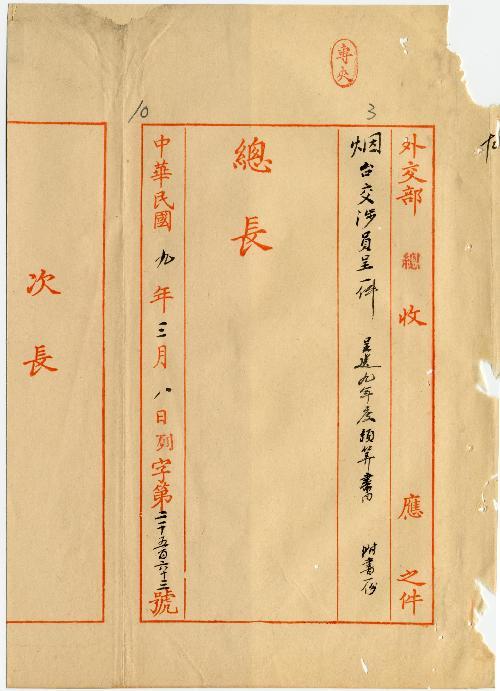 專夾
3
10
外交部 總 收 應 之件
烟台交涉員呈一件 呈送九年度預算書由 附書一份
總長
中華民國九年三月八日列字第二千五百六十三號
次長